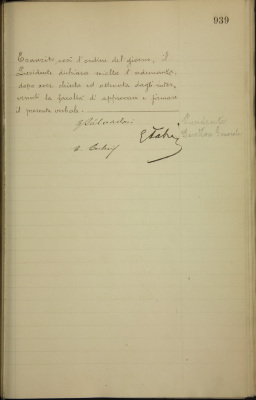 939
Esaurito così l'ordine del giorno, il
Presidente dichiara sciolta l'adunanza,
dopo aver chiesta ed ottenuta dagli inter,
venuti la facoltà di approvare e firmare
il presente verbale.